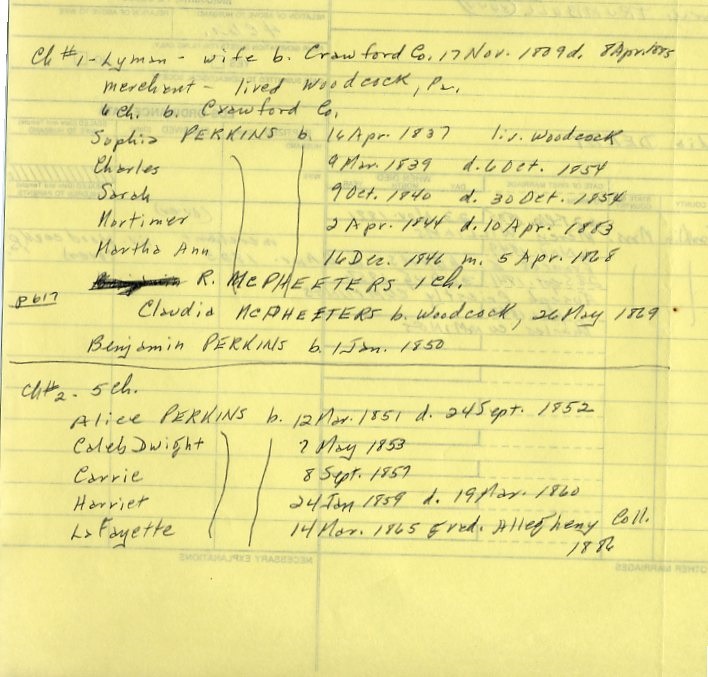 Ch #1 - Lyman - wife b. Crawford Co. 17 Nov. 1809 d. 8 Apr. 1885
merchant - lived Woodcock, Pa.
6 ch. b. Crawford Co.
Sophia PERKINS b. 16 Apr. 1837 liv. Woodcock
Charles ) ) 9 Mar. 1839 d. 6 Oct. 1854
Sarah 9 Oct. 1840 d. 30 Oct. 1854
Mortimer 2 Apr. 1844 d. 10 Apr. 1883
Martha Ann 16 Dec. 1846 m. 5 Apr. 1868
R. McPHEETERS 1 ch.
p 617
Claudia McPHEETERS b. Woodcock, 26 May 1869
Benjamin PERKINS b. 1 Jan. 1850
Ch #2 - 5 ch.
Alice PERKINS b. 12 Mar. 1851 d. 24 Sept. 1852
Caleb Dwight ) ) May 1853
Carrie 8 Sept. 1857
Harriet 24 Jan 1859 d. 19 Mar. 1860
LaFayette 14 Mar. 1865 grad. Allegheny Coll.
1886
NECESSARY EXPLANATIONS
OTHER MARRIAGES